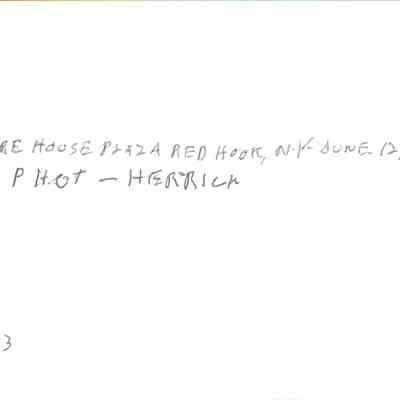 RE HOUSE PLAZA RED HOOK, N.Y. JUNE 12,
PHOT — HERRICK
3